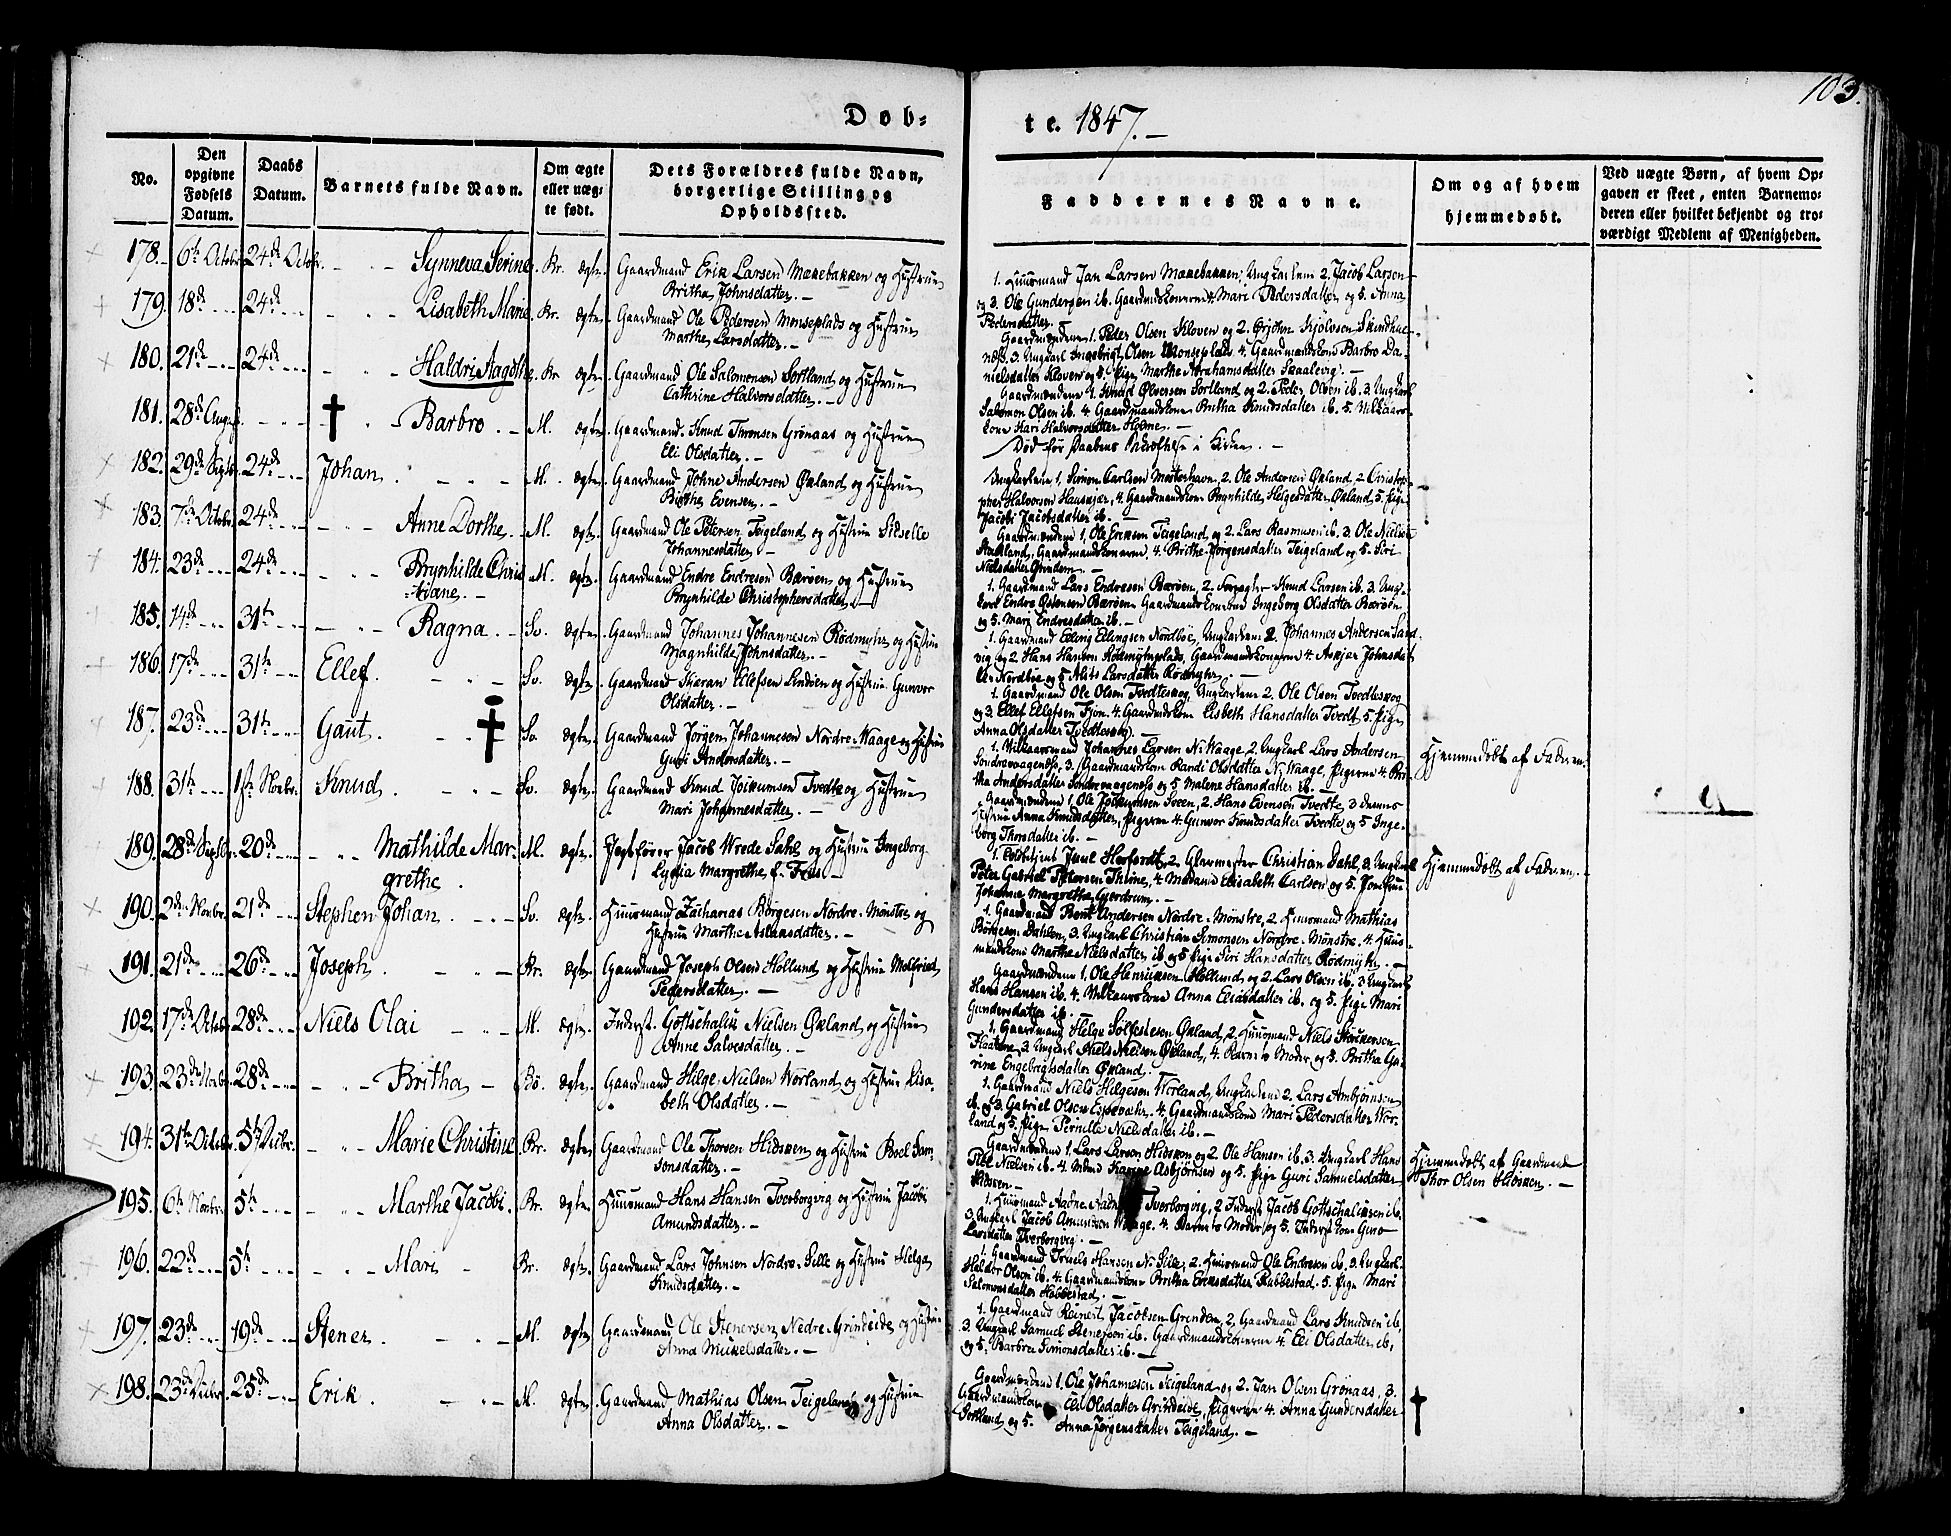 103.
Døb-
te. 1847.-
No.
Den opgivne Fødsels Datum.
Daabs Datum.
Barnets fulde Navn.
Om ægte eller uæg-te født.
Dets Forældres fulde Navn, borgerlige Stilling og Opholdssted.
Faddernes Navne.
Om og af hvem hjemmedøbt.
Ved uægte Børn, af hvem Op-
gaven er skeet, enten Barnemo-
deren eller hvilket bekjendt og tro-
værdigt Medlem af Menigheden.
178. 6te Octobr. 24de Octobr. Synneva Serine. Br. Ægte. Gaardmand Erik Larsen Mækebakken og Hustrue
Britha Johnsdatter.
1. Huusmand Jan Larsen Mækebakken, Ungkarlene 2. Jacob Larsen
og 3. Ole Gundersen ib. Gaardmandskonerne 4. Mari Pedersdatter og 5. Anna
Pedersdatter
179. 18de 24de Lisabeth Marie. Br. Ægte. Gaardmand Ole Pedersen Monseplads og Hustrue
Marthe Larsdatter.
Gaardmændene 1. Peder Olsen Kloven og 2. Ørjchen Kjølvsen Skindhue-
næss, 3. Ungkarl Ingebrigt Olsen Monseplads 4. Gaardmandskone Barbro Da-
nielsdatter Kloven og 5. Pige Marthe Abrahamsdatter Skaalevig.
180. 21de 24de Haldri Aagothe. Br. Ægte. Gaardmand Ole Salomonsen Sortland og Hustrue
Cathrine Halvorsdatter.
Gaardmændene 1. Knud Øvernsen Sortland og 2. Peder Olsen ib. 3. Ungkarl
Salomon Olsen ib. 4 Gaardmandskone Britha Knudsdatter ib. 5. Vilkaars-
kone Kari Halvorsdatter Holme.
181. 28de Augus † Barbro. M. Ægte. Gaardmand Knud Thronsen Grønaas og Hustrue
Eli Olsdatter.
Død før Daabens Bekræftelse i Kirken.
182. 29de Septbr. 24de Johan. M. Ægte. Gaardmand Johne Andersen Økland og Hustrue
Birthe Evensen.
Ungkarlene 1. Simon Carlsen Mosterhavn, 2. Ole Andersen Økland, 3. Christop-
pher Halvorsen Hauskjær, 4. Gaardmandskone Brynhilde Helgesdatter Økland, 5. Pige
Jacobi Jacobsdatter ib.
183. 7de Octobr. 24de Anne Dorthe. M. Ægte. Gaardmand Ole Petersen Teigeland og Hustrue Sitselle
Johannesdatter
Gaardmændene 1. Ole Eriksen Teigeland og 2. Lars Rasmusen ib. 3. Ole Nielsen
Stakland, Gaardmandskonerne, 4. Brithe Jørgensdatter Teigeland og 5. Siri
Nielsdatter Grindem.
184. 23de 24de Brynhilde Chris-
tiane. M. Ægte. Gaardmand Endre Endresen Bærøen og Hustrue
Brynhilde Christophersdatter.
1. Gaardmand Lars Endresen Bærøen, 2. Knud Larsen ib. 3. Ung-
karl Endre Østensen Bærøen Gaardmandskonerne Ingeborg Olsdatter Bærøen
og 5. Mari Endresdatter ib.
185. 14de 31te Ragna. Sv. Ægte. Gaardmand Johannes Johannesen Rødmyhr og Hustrue
Magnhilde Johnsdatter.
1. Gaardmand Elling Ellingsen Nordbøe, Ungkarlene 2. Johannes Andersen Sand-
vig og 3 Hans Hansen Rødmyhrplads, Gaardmandskonerne 4. Askjær Johnsdat-
ter Nordbøe og 5 Alis Larsdatter Rødmyhr.
186. 17de 31te Ellef. Sv. Ægte. Gaardmand Tjeran Ellefsen Lindøen og Hustrue Gunvor
Olsdatter.
1. Gaardmand Ole Olsen Tvedteskog, Ungkarlene 2. Ole Olsen Tvedteskog
og 3. Ellef Ellefsen Fjon. 4. Gaardmandskone Lisbeth Hansdatter Tvedt, 5. Pige
Anna Olsdatter Tvedteskog.
187. 23de 31te Gaut. † Sv. Ægte. Gaardmand Jørgen Johannesen Nordre-Waage og Hustrue
Guri Andersdatter.
1. Vilkaarsmand Johannes Larsen N. Waage, 2. Ungkarl Lars Andersen
Søndrevaagenæss, 3. Gaardmandskone Randi Olsdatter N. Waage, Pigerne 4. Bri-
tha Andersdatter Søndrevaagenæss og 5 Malene Hansdatter ib.
Hjemmedøbt af Faderen.
188. 31te 1ste Novbr. Knud. Sv. Ægte. Gaardmand Knud Joikumsen Tvedte og Hustrue
Mari Johannesdatter.
Gaardmændene 1. Ole Joikumsen Steen, 2. Hans Evensen Tvedte, 3 dennes
Hustrue Anna Knudsdatter, Pigerne 4. Gunvor Knudsdatter Tvedte og 5 Inge-
borg Thorsdatter ib.
189. 28de Septbr. 20de Mathilde Mar-
grethe. M. Ægte. Jegtfører Jacob Wrede Sahl og Hustrue Ingeborg
Lydia Margrethe f. Friis.
1. Toldbetjent Juul Herfordt, 2. Glarmester Christian Dahl, 3. Ungkarl
Peter Gabriel Petersen Thrine, 4. Madame Elisabeth Carlsen og 5. Jomfrue
Johanna Margrethe Gjerdrum.
Hjemmedøbt af Faderen.
190. 2den Novbr. 21de Stephen Johan. Sv. Ægte. Huusmand Zacharias Børgesen Nordre-Mønstre og
Hustrue Marthe Aslaksdatter.
1. Gaardmand Bent Andersen Nordre-Mønstre, 2. Huusmand Mathias
Børgesen Dahlen, 3. Ungkarl Christian Simonsen Nordre-Mønstre. 4. Huus-
mandskone Marthe Nielsdatter ib. og 5 Pige Siri Hansdatter Rødmyhr.
191. 21de 26de Joseph. Br. Ægte. Gaardmand Joseph Olsen Hollund og Hustrue Molfried
Pedersdatter.
Gaardmændene 1. Ole Henriksen Hollund og 2. Lars Olsen ib. 3 Ungkarl
Hans Hansen ib. 4. Vilkaarskone Anna Eliasdatter ib. og 5. Pige Mari
Gundersdatter ib.
192. 17de Octobr. 28de Niels Olai M. Ægte. Inderst. Gottschalk Nielsen Økland og Hustrue
Anne Salvesdatter.
1. Gaardmand Helge Sølfestesen Økland, 2. Huusmand Niels
3 Ungkarl Niels Nielsen Økland, 4. Barnets Moder, og 5. Britha Ga-
rine Engebrigtsdatter Økland.
193. 23de Novbr. 28de Britha Bø. Ægte. Gaardmand Helge Nielsen Worland og Hustrue Lisa-
beth Olsdatter.
1. Gaardmand Niels Helgesen Worland, Ungkarlene 2. Lars Ambjørnsen
ib. og 3. Gabriel Olsen Espevæhr. 4. Gaardmandskone Mari Pedersdatter Wor-
land og 5. Pige Pernille Nielsdatter ib.
194. 31te Octobr. 5te Decbr. Marie Christine Br. Ægte. Gaardmand Ole Thorsen Hidskøn og Hustrue Boel Sam-
sonsdatter.
Gaardmændene 1. Lars Larsen Hidskøn og 2. Ole Hansen ib. 3. Ungkarl Hans
Nielsen ib. 4. Karine Asbjørnsen og 5. Pige Guri Samuelsdatter
Hidskøn.
Hjemmedøbt af Gaardmand
Thor Olsen Hidskøn.
195. 6te Novbr. 5te Marthe Jacobi. Br. Ægte. Huusmand Hans Hansen Tverborgvig og Hustrue Jacobi
Amundsdatter.
1. Huusmand Tverborgvig, 2 Inderst Jacob Gottschalksen ib.
3. Ungkarl Jacob Amundsen Waage. 4. Barnets Moder, og 5. Inderst kone Guro
Larsdatter Tverborgvig.
196. 22de 5te Mari Br. Ægte. Gaardmand Lars Johnsen Nordre-Sille og Hustrue Helga
Knudsdatter.
1. Gaardmand Troels Hansen N. Sille, 2. Huusmand Ole Endresen ib. 3. Ungkarl
Haldor Olson ib. 4. Gaardmandskone Britha Eriksdatter Rabbestad. 5. Pige Mari
Salomonsdatter Habbestad.
197. 23de 19de Stener. M. Ægte. Gaardmand Ole Stenersen Nedre-Grindeide og Hustrue
Anna Mickelsdatter.
1. Gaardmand Reinert Jacobsen Grenden, 2. Gaardmand Lars Knudsen ib.
3. Ungkarl Samuel Stenersen ib. Gaardmandskonerne 4. Eli Olsdatter ib,
og 5. Barbro Simonsdatter ib.
198. 23de Decbr. 25de Erik. M. Ægte. Gaardmand Mathias Olsen Teigeland og Hustrue
Anna Olsdatter.
Gaardmændene 1. Ole Johannesen Teigeland og 2. Jan Olsen Grønaas, 3.
Gaardmandskone Eli Olsdatter Grindeide, Pigerne 4. Anna Gundersdatter
Sortland, og 5. Anna Jørgensdatter Teigeland.
†